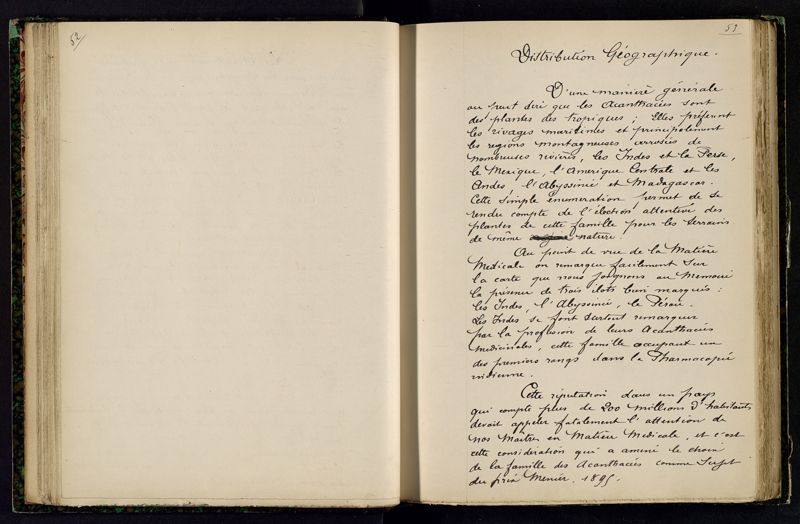 52
53
Distribution Géographique.
D'une manière générale
on peut dire que les Acanthacées sont
des plantes des tropiques ; Elles préfèrent
les rivages maritimes et principalement
les regions montagneuses, arrosées de
nombreuses rivières, les Indes et la Perse,
le Mexique, l'Amerique Centrale et les
Andes, l'Abyssinie et Madagascar.
Cette simple énumeration permet de se
rendre compte de l'élection attentive des
plantes de cette famille pour les terrains
de même nature.
Au point de vue de la Matière
Medicale on remarque facilement sur
la carte que nous joignons au Memoire
la présence de trois ilots bien marqués :
les Indes, l'Abyssinie, le Pérou.
Les Indes se font surtout remarquer
par la profusion de leurs Acanthacées
medicinales, cette famille occupant un
des premiers rangs dans la Pharmacopée
indienne.
Cette réputation dans un pays
qui compte plus de 200 millions d'habitants
devait appeler fatalement l'attention de
nos Maîtres en Matière Medicale, et c'est
cette consideration qui a amené le choix
de la famille des Acanthacées comme Sujet
du prix Menier. 1895.